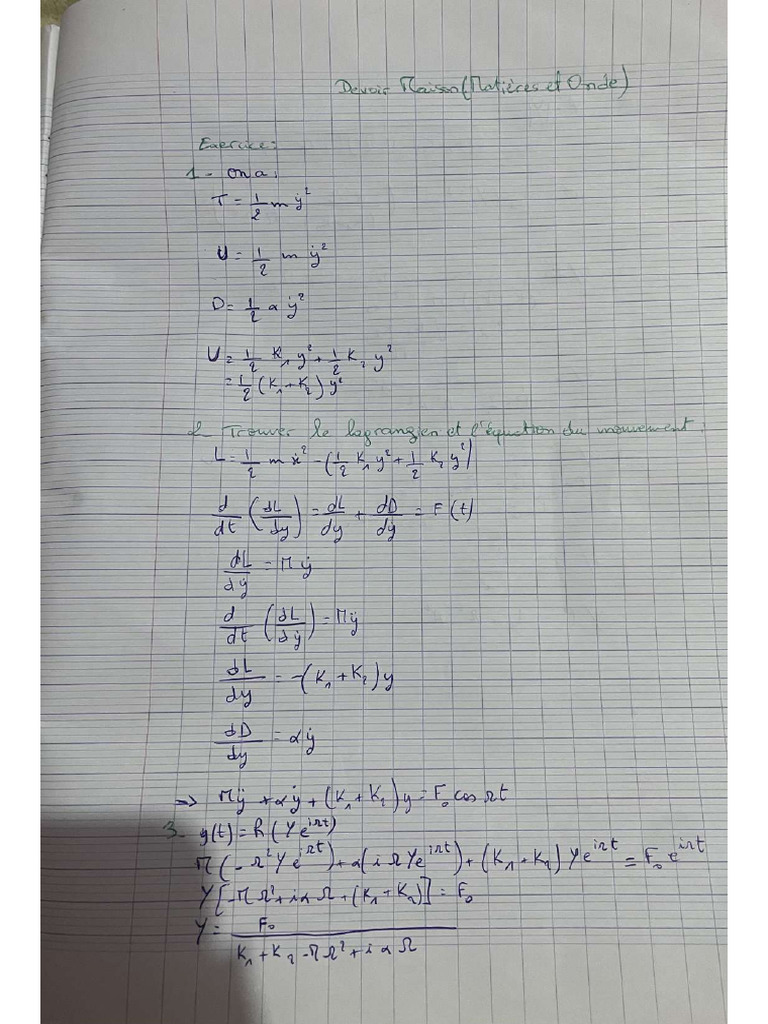 Devoir Maison (Matières et Onde)
Exercice:
1- On a:
T = 1/2 m ẏ²
U = 1/2 m ẏ²
D = 1/2 α ẏ²
U = 1/2 K₁ y² + 1/2 K₂ y²
= 1/2 (K₁ + K₂) y²
2- Trouver le lagrangien et l'équation du mouvement:
L = 1/2 m ẋ² - (1/2 K₁ y² + 1/2 K₂ y²)
d/dt (dL/dẏ) = dL/dy + dD/dẏ = F(t)
dL/dẏ = M ẏ
d/dt (dL/dẏ) = M ÿ
dL/dy = -(K₁ + K₂) y
dD/dy = α ẏ
=> M ÿ + α ẏ + (K₁ + K₂) y = F₀ cos Ωt
3- y(t) = R (Y e^{iΩt})
M (-Ω² Y e^{iΩt}) + α (i Ω Y e^{iΩt}) + (K₁ + K₂) Y e^{iΩt} = F₀ e^{iΩt}
Y [-M Ω² + i α Ω + (K₁ + K₂)] = F₀
Y = F₀ / (K₁ + K₂ - M Ω² + i α Ω)